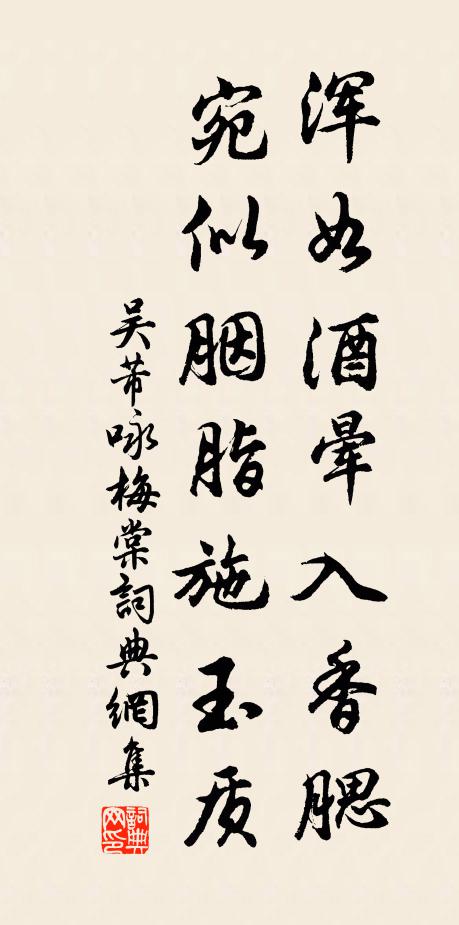 浑如酒暈入香腮
宛似胭脂施玉质
吴芾咏梅棠詞典網集
詞典网印